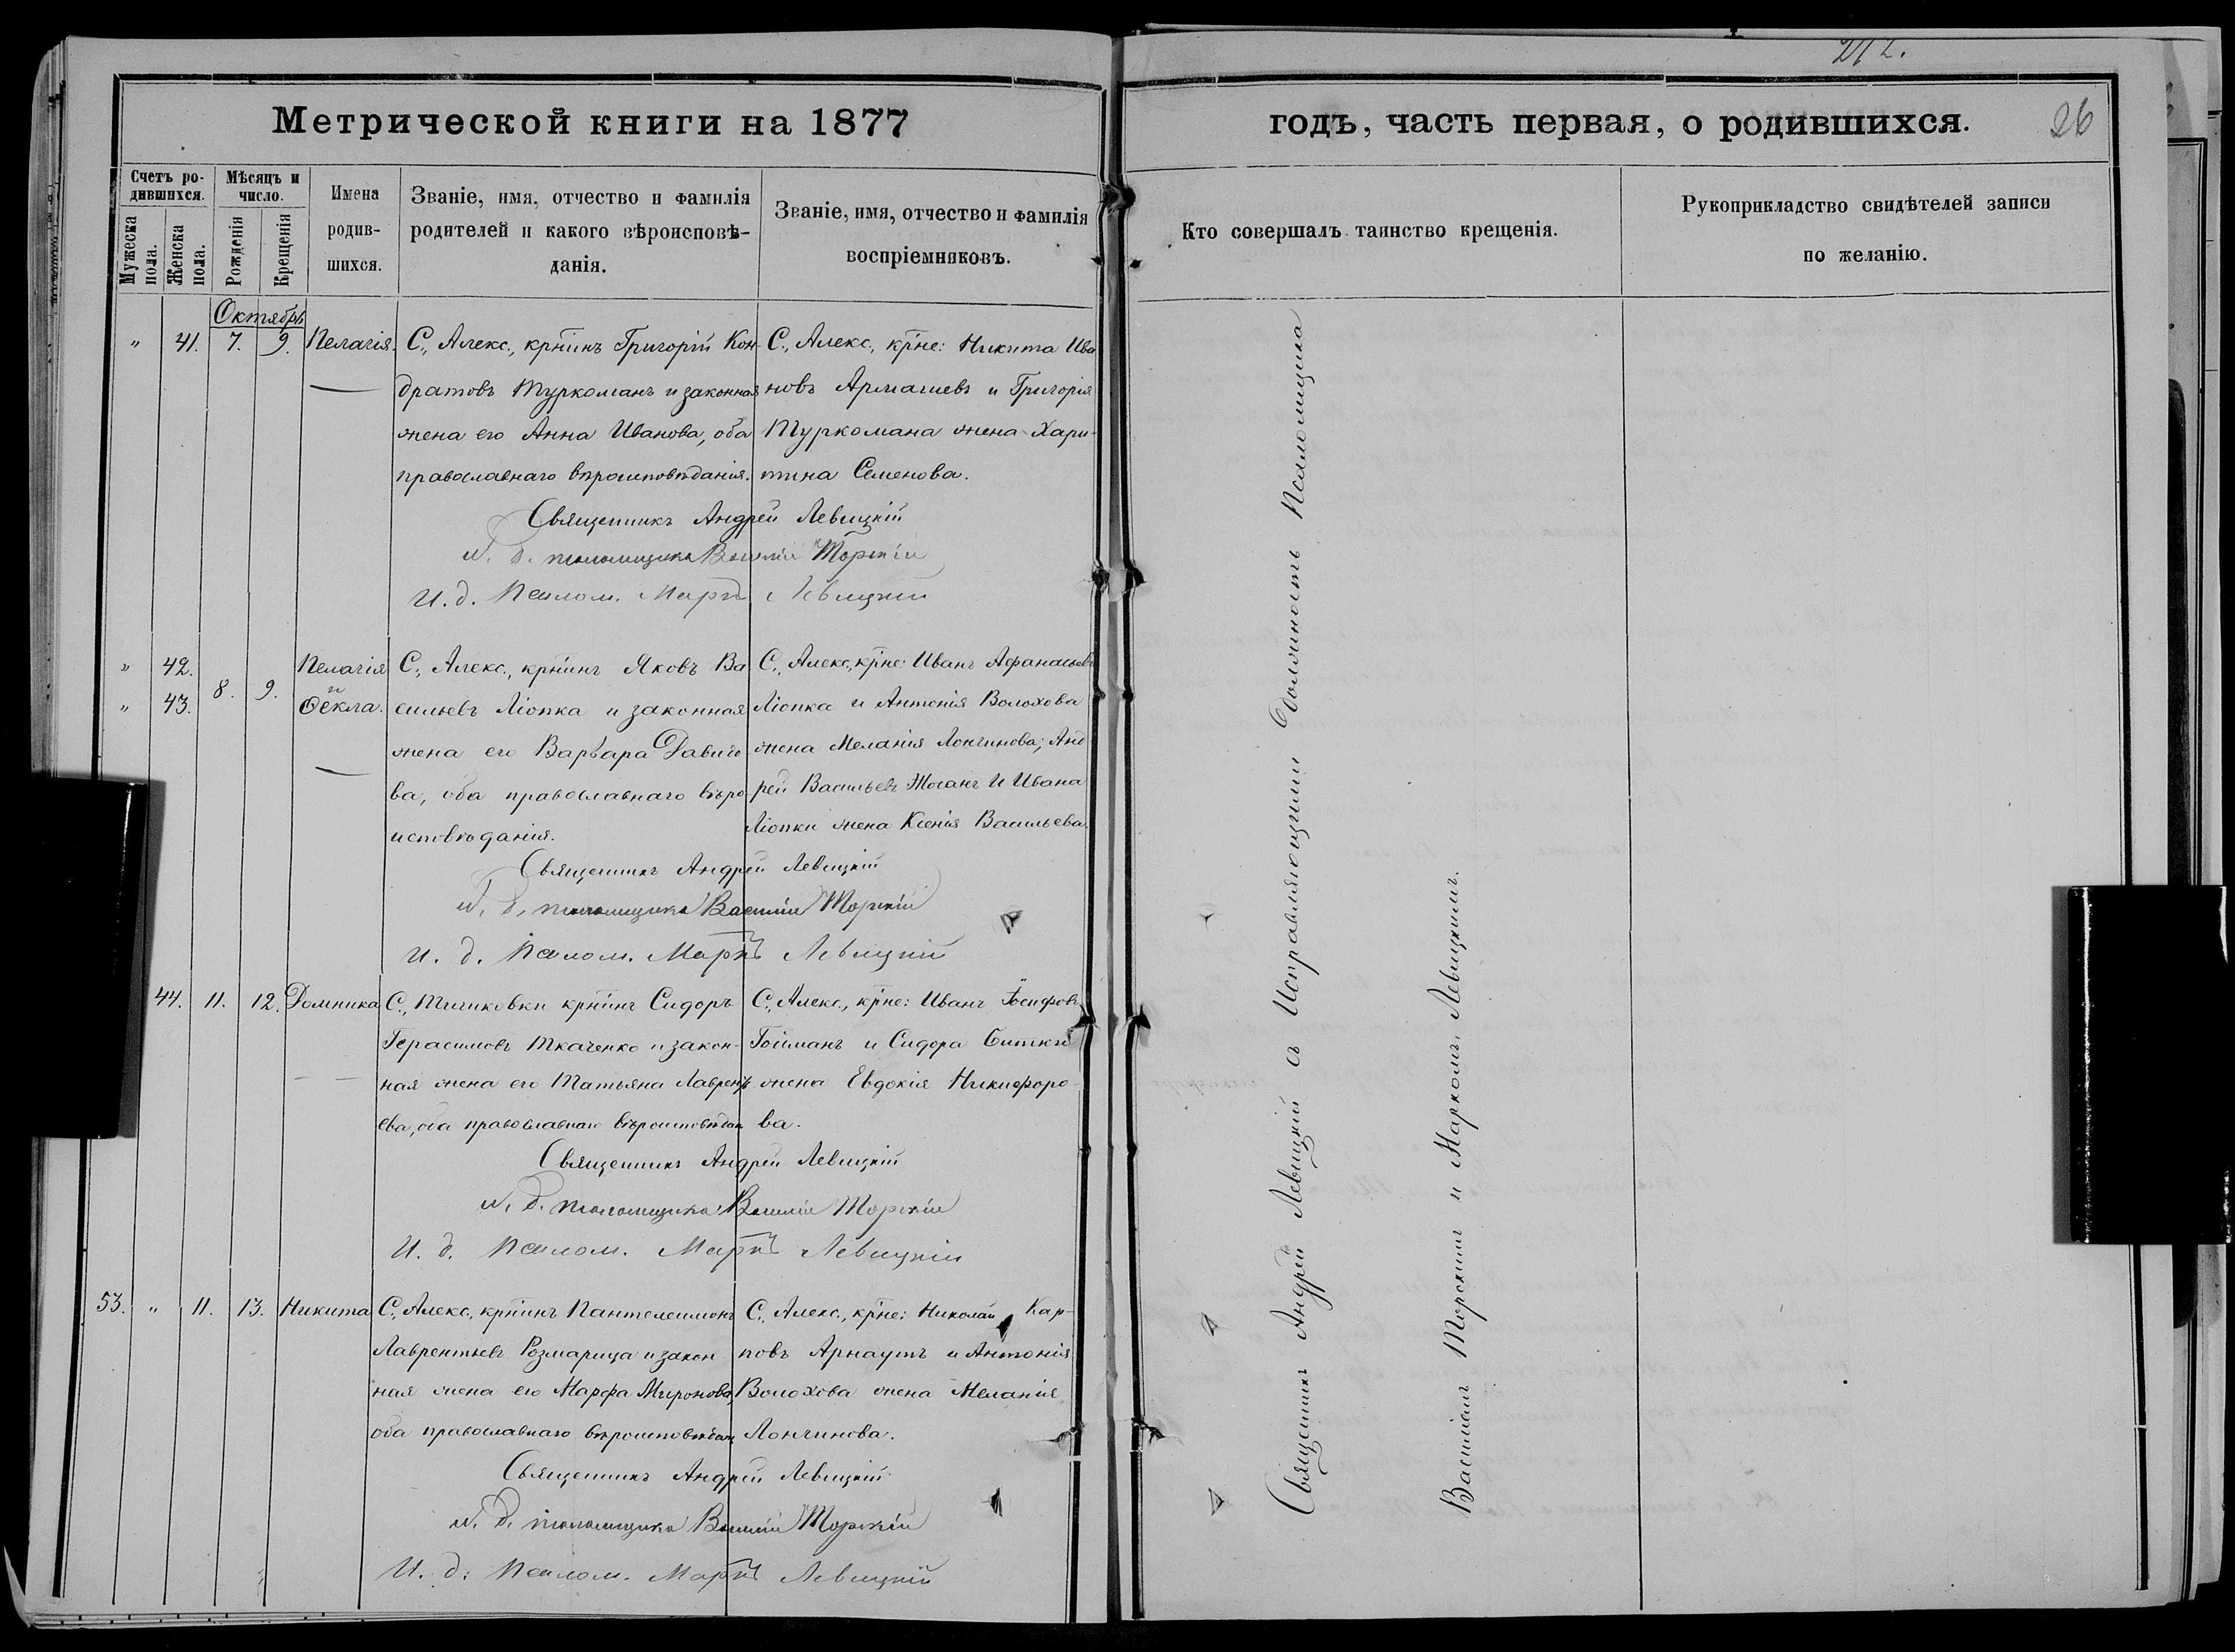 212.
Метрической книги на 1877
годъ, часть первая, о родившихся.
26
Счетъ ро-
дившихся.
Мужеска пола.
Женска пола.
Мѣсяцъ и
число.
Рожденія
Крещенія
Имена
родив-
шихся.
Званіе, имя, отчество и фамилія
родителей и какого вѣроисповѣ-
данія.
Званіе, имя, отчество и фамилія
воспріемниковъ.
Кто совершалъ таинство крещенія.
Рукоприкладство свидѣтелей записи
по желанію.
Октябрь
" 41. 7. 9. Пелагія.
С., Алекс., крнинъ Григорій Кон-
дратовъ Туркоманъ и законная
жена его Анна Иванова, оба
православнаго вѣроисповѣданія.
С., Алекс., крне: Никита Ива
новъ Армашевъ и Григорія
Туркомана жена Хари-
тина Семенова.
Священникъ Андрей Левицкій
И. д. псаломщика Василій Торскій
И. д. Псалом. Маркъ Левицкій
" 42. Пелагія
8. 9. и
" 43. Ѳекла.
С., Алекс., крнинъ Яковъ Ва
сильевъ Ліопка и законная
жена его Варвара Давидо
ва, оба православнаго вѣро
исповѣданія.
С., Алекс., крне: Иванъ Афанасьевъ
Ліопка и Антонія Волохова
жена Меланія Лончинова; Анд
рей Васильевъ Жоганъ И Ивана
Ліопки жена Ксенія Васильева.
Священникъ Андрей Левицкій
И. д. псаломщика Василій Торскій
И. д. Псалом. Маркъ Левицкій
44. 11. 12. Домника
С., Тишковки крнинъ Сидоръ
Герасимовъ Ткаченко и закон-
ная жена его Татьяна Лаврентъ
ева, оба православнаго вѣроисповѣдан
С., Алекс., крне: Иванъ Іосифовъ
Гойманъ и Сидора
жена Евдокія Никифоро-
ва.
Священникъ Андрей Левицкій
И. д. псаломщика Василій Торскій
И. д. Псалом. Маркъ Левицкій
53. " 11. 13. Никита
С., Алекс., крнинъ Пантелеимонъ
Лаврентьевъ Розмарица и закон
ная жена его Марфа Миронова,
оба православнаго вѣроисповѣдан
С., Алекс., крне: Николай Кар-
повъ Арнаутъ и Антонія
Волохова жена Меланія
Лончинова.
Священникъ Андрей Левицкій
И. д. псаломщика Василій Торскій
И. д. Псалом. Маркъ Левицкій
Священникъ Андрей Левицкій съ Исправляющими Должность Псаломщика
Василіемъ Торскимъ и Маркомъ Левицкимъ.